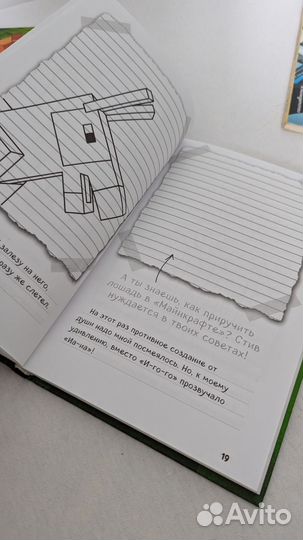 залезу на него,
разу же слетел.
А ты знаешь, как приручить
лошадь в «Майнкрафте»? Стив
нуждается в твоих советах!
На этот раз противное создание от
души надо мной посмеялось. Но, к моему
удивлению, вместо «И-го-го» прозвучало
«Иа-иа»!
19
Avito